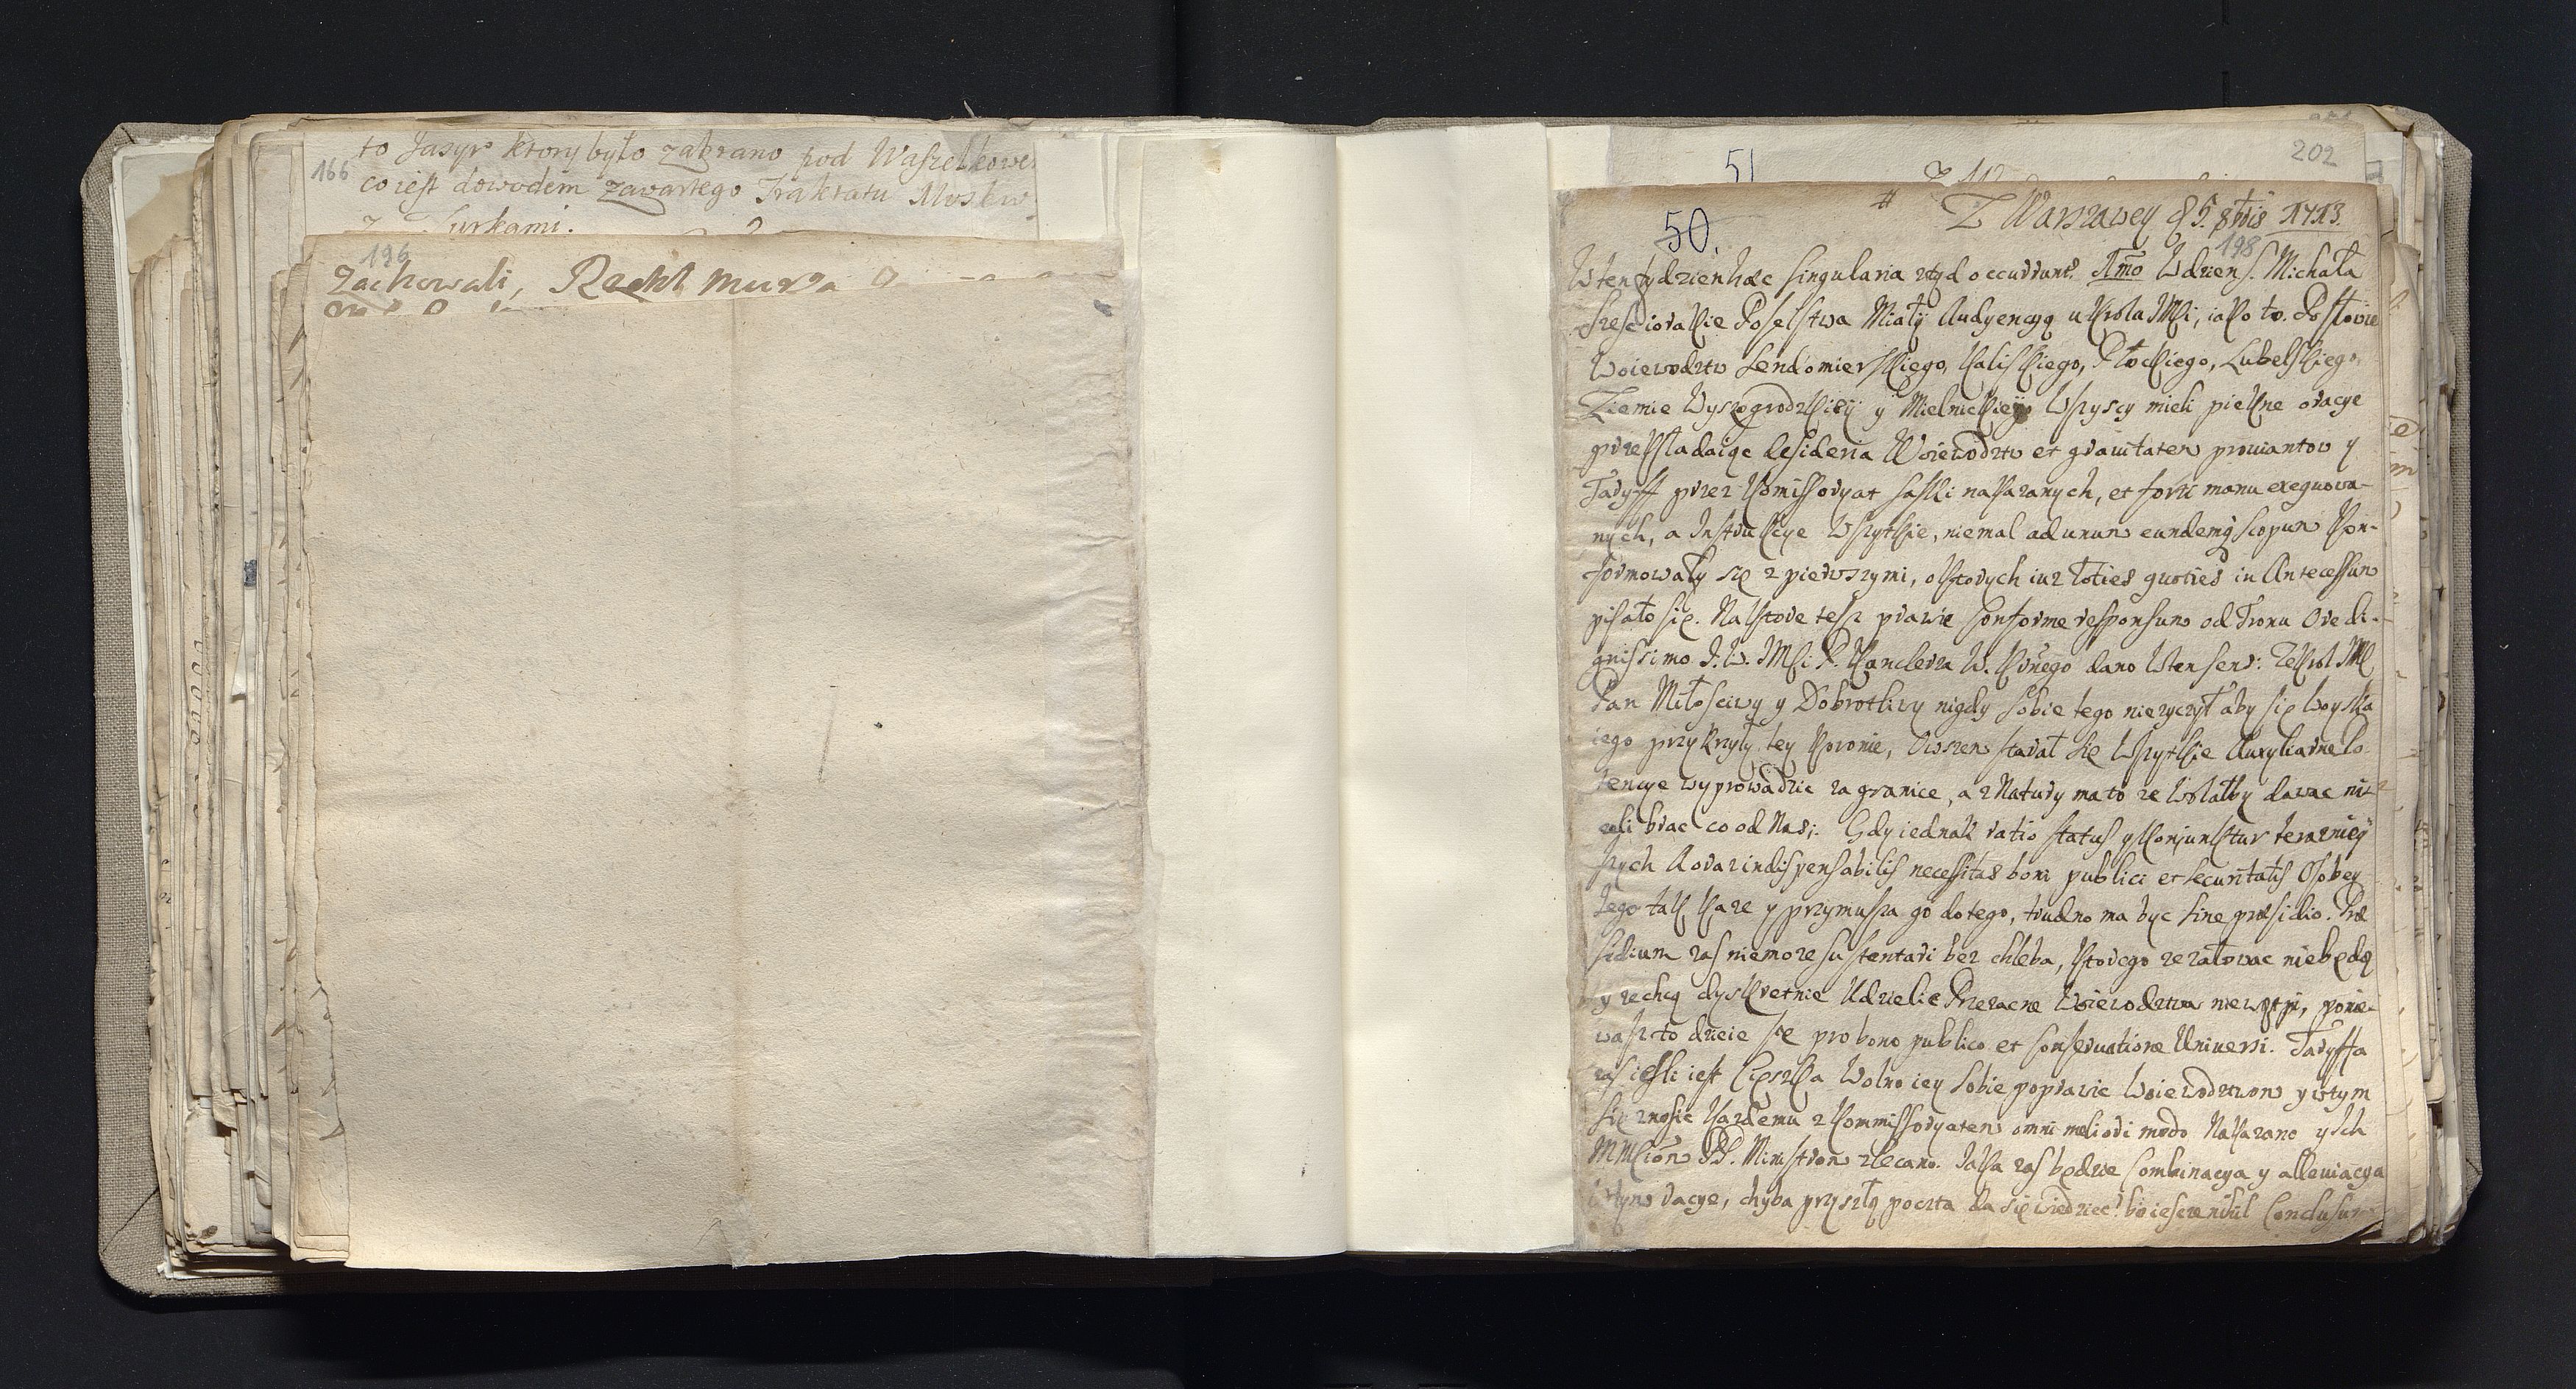 166
to Jasyr ktory było zabrano pod Waszelkowe
co iest dowodem zawartego Traktatu Moskw
z Turkami.
196
zachowali,
202
51
50.
Z Warszawy d 5. 8bris 1713.
198
W ten tydzien hæc singularia ztąd occurrunt. Imo W dzien S. Michała
szescioraKie Poselstwa Miały Audyencyą u Krola JMśi, iako to. Posłowie
Woiewodztw Sendomierskiego, Kaliskiego, Płockiego, Lubelskiego,
Ziemie Wyszogrodzkiey y Mielnickiey Wszyscy mieli piekne oracye
przekładaiąc desideria Woiewodztw et gravitatem prowiantow y
Taryff przez Komissoryat Saski nakazanych, et forti manu exequowa-
nych, a Instrukcye Wszytkie, niemal ad unum eundemq scopum Kon-
formowały się z pierwszymi, o ktorych iuz toties quoties in Antecessum
pisało się. Na ktore tesz prawie conforme responsum od Tronu Ore di-
gnissimo J. W. JMśi P. Kanclerza W. Kornego dano W ten sens: Ze Krol JM
Pan Miłosciwy y Dobrotliwy nigdy sobie tego nie zyczył aby się woyska
iego przykrzyły tey Koronie, Owszem starał się Wszytkie Auxyliarne Po-
tencye wyprowadzic za granice, a z Natury ma to ze wolałby dawac niz
eli brac co od Nas; Gdy iednak ratio status y Konjunktur terazniey
szych A oraz indispensabilis necessitas boni publici et securitatis Osoby
Jego tak Kaze y przymusza go do tego, trudno ma byc sine præsidio. Præ
sidium zas nie moze sustentari bez chleba, Ktorego ze załowac nie będą
y zechcą dyskretnie Udzielic Przezacne Woiewodztwa niewątpi, ponie-
wasz to dzieie się pro bono publico et conservatione Universi. Taryffa
zas iesli iest Cięszka Wolno iey sobie poprawic Woiewodztwom y w tym
się znosic Kazdemu z Kommissoryatem omni meliori modo Nakazano y Ich
MMściom PP. Ministrom zlecano. Jaka zas będzie combinacya y allewiacya
w tym racye, chyba przyszłą poczta da się wiedziec! bo ieszcze nihil Conclusum